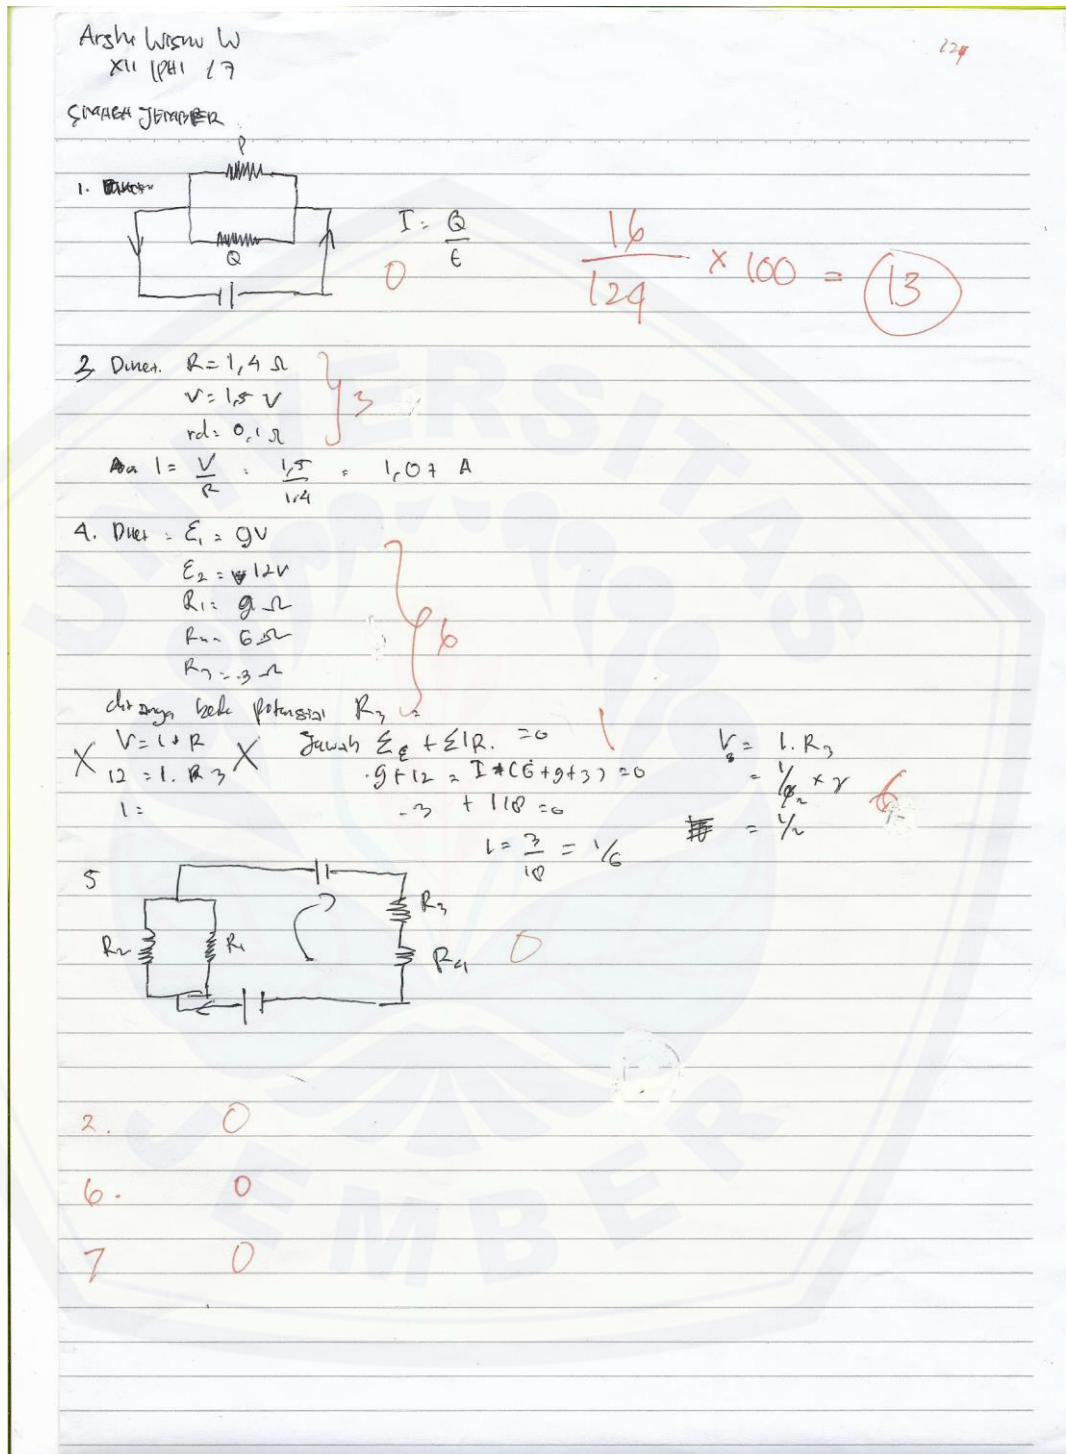 Arshi Wisnu W
XII IPA1 / 7
124
SMABH JEMBER
P
1.
Q
I = Q
t
0
16
124 × 100 = 13
3 Diket. R = 1,4 Ω
V = 1,5 V
rd = 0,1 Ω
3
I = V = 1,5 = 1,07 A
R 1,4
4. Diket = ε1 = 9V
ε2 = 12V
R1 = 9 Ω
6 Ω
R3 = 3 Ω
6
ditanya beda potensial R3
V = I * R
12 = I. R3
I =
Jawab Σε + ΣIR. = 0
-9+12 = I * (6+9+3) = 0
-3 + I18 = 0
I = 3 = 1/6
18
1
V3 = I. R3
= 1/2
6
5
R2
R1
R3
R4
0
2. 0
6. 0
7 0
UNIVERSITAS
JEMBER